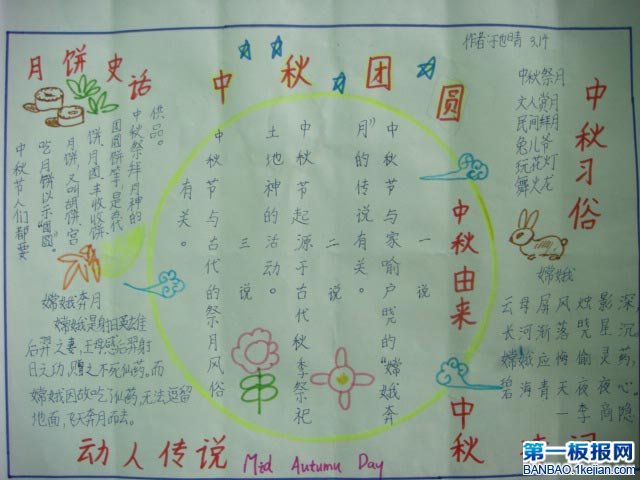 作者:于也晴 3.1班
中秋团圆
月饼史话
中秋节人们都要
吃月饼以示"团圆"。
月饼又叫胡饼、宫
饼、月团、丰收饼、
团圆饼等,是古代
中秋祭拜月神的
供品。
中秋由来
一说
中秋节与家喻户晓的"嫦娥奔
月"的传说有关。
二说
中秋节起源于古代秋季祭祀
土地神的活动。
三说
中秋节与古代的祭月风俗
有关。
中秋习俗
中秋祭月
文人赏月
民间拜月
兔儿爷
玩花灯
舞火龙
嫦娥
云母屏风烛影深,
长河渐落晓星沉
嫦娥应悔偷灵药,
碧海青天夜夜心。
一李商隐
嫦娥奔月
嫦娥是射日英雄
后羿之妻,王母感后羿射
日之功,赠之不死仙药。而
嫦娥因故吃了仙药,无法逗留
地面,飞天奔月而去。
动人传说
Mid Autumu Day
中秋
第一板报网
BANBAO.1kejian.com